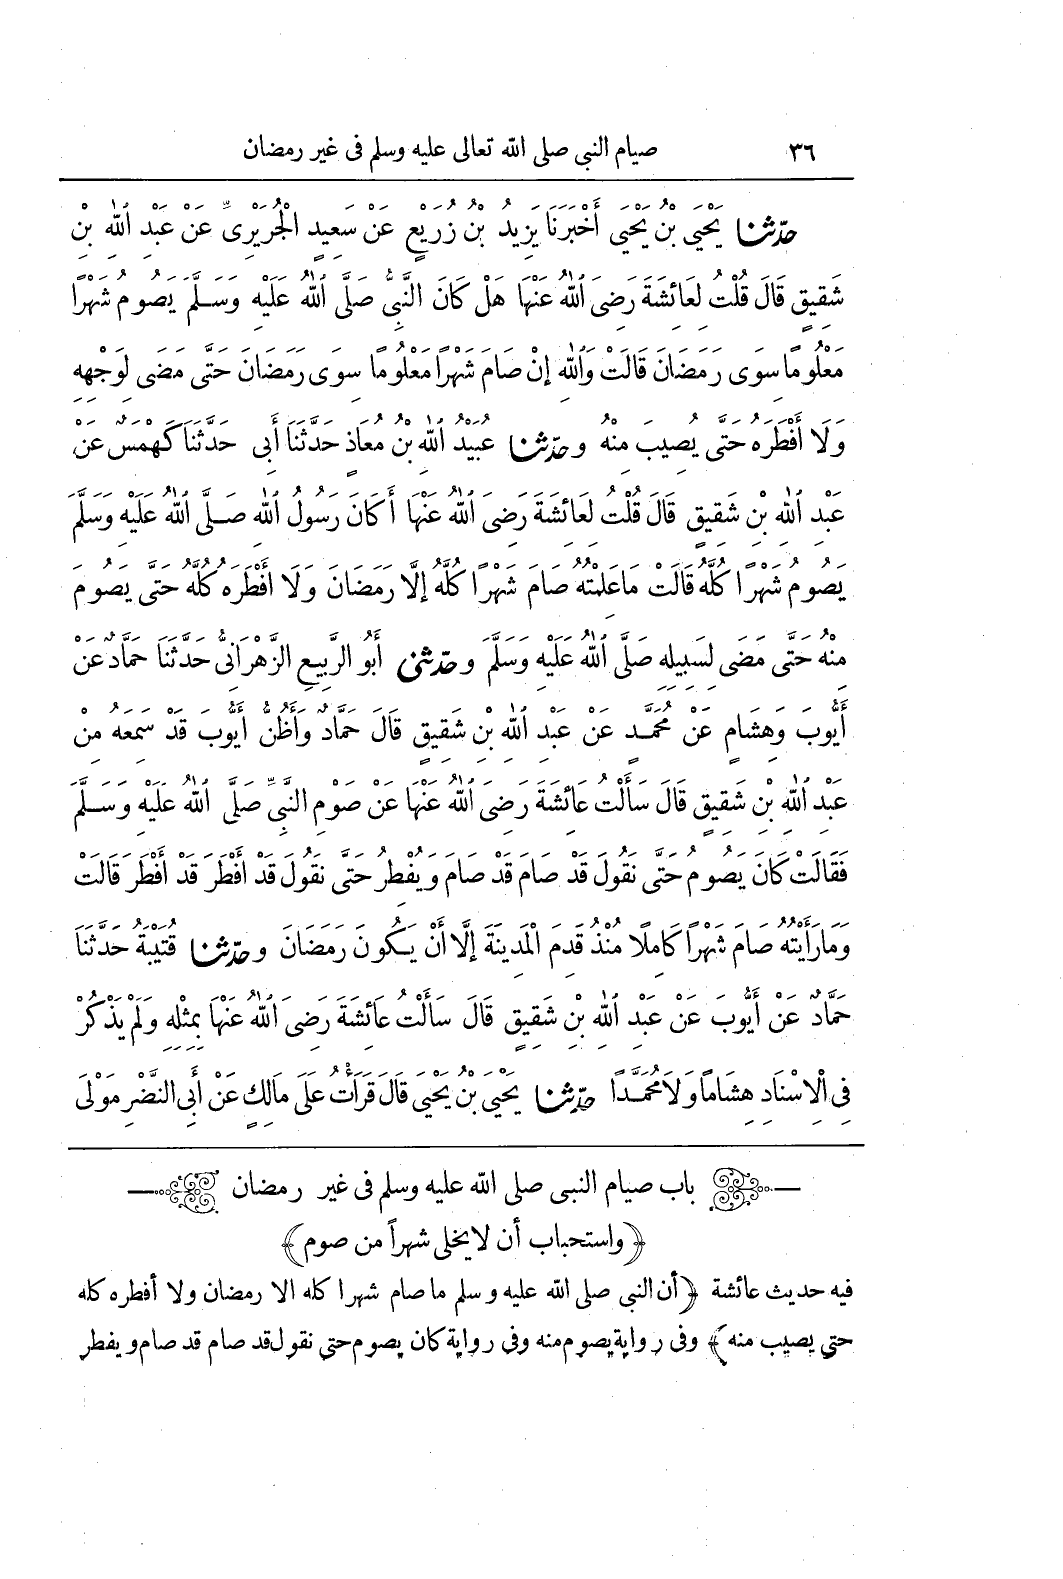 ٣٦ صيام النبى صلى الله تعالى عليه وسلم فى غير رمضان
حدّثنا يَحْيَى بْنُ يَحْيَى أَخْبَرَنَا يَزِيدُ بْنُ زُرَيْعٍ عَنْ سَعِيدٍ الْجُرَيْرِىِّ عَنْ عَبْدِ اللهِ بْنِ
شَقِيقٍ قَالَ قُلْتُ لِعَائِشَةَ رَضِىَ اللهُ عَنْهَا هَلْ كَانَ النَّبِىُّ صَلَّى اللهُ عَلَيْهِ وَسَلَّمَ يَصُومُ شَهْرًا
مَعْلُومًا سِوَى رَمَضَانَ قَالَتْ وَاللهِ إِنْ صَامَ شَهْرًا مَعْلُومًا سِوَى رَمَضَانَ حَتَّى مَضَى لِوَجْهِهِ
وَلَا أَفْطَرَهُ حَتَّى يُصِيبَ مِنْهُ وحدّثنا عُبَيْدُ اللهِ بْنُ مُعَاذٍ حَدَّثَنَا أَبِى حَدَّثَنَا كَهْمَسٌ عَنْ
عَبْدِ اللهِ بْنِ شَقِيقٍ قَالَ قُلْتُ لِعَائِشَةَ رَضِىَ اللهُ عَنْهَا أَكَانَ رَسُولُ اللهِ صَلَّى اللهُ عَلَيْهِ وَسَلَّمَ
يَصُومُ شَهْرًا كُلَّهُ قَالَتْ مَا عَلِمْتُهُ صَامَ شَهْرًا كُلَّهُ إِلَّا رَمَضَانَ وَلَا أَفْطَرَهُ كُلَّهُ حَتَّى يَصُومَ
مِنْهُ حَتَّى مَضَى لِسَبِيلِهِ صَلَّى اللهُ عَلَيْهِ وَسَلَّمَ وحدّثنى أَبُو الرَّبِيعِ الزَّهْرَانِىُّ حَدَّثَنَا حَمَّادٌ عَنْ
أَيُّوبَ وَهِشَامٍ عَنْ مُحَمَّدٍ عَنْ عَبْدِ اللهِ بْنِ شَقِيقٍ قَالَ حَمَّادٌ وَأَظُنُّ أَيُّوبَ قَدْ سَمِعَهُ مِنْ
عَبْدِ اللهِ بْنِ شَقِيقٍ قَالَ سَأَلْتُ عَائِشَةَ رَضِىَ اللهُ عَنْهَا عَنْ صَوْمِ النَّبِىِّ صَلَّى اللهُ عَلَيْهِ وَسَلَّمَ
فَقَالَتْ كَانَ يَصُومُ حَتَّى نَقُولَ قَدْ صَامَ قَدْ صَامَ وَيُفْطِرُ حَتَّى نَقُولَ قَدْ أَفْطَرَ قَدْ أَفْطَرَ قَالَتْ
وَمَا رَأَيْتُهُ صَامَ شَهْرًا كَامِلًا مُنْذُ قَدِمَ الْمَدِينَةَ إِلَّا أَنْ يَكُونَ رَمَضَانَ وحدّثنا قُتَيْبَةُ حَدَّثَنَا
حَمَّادٌ عَنْ أَيُّوبَ عَنْ عَبْدِ اللهِ بْنِ شَقِيقٍ قَالَ سَأَلْتُ عَائِشَةَ رَضِىَ اللهُ عَنْهَا بِمِثْلِهِ وَلَمْ يَذْكُرْ
فِى الْإِسْنَادِ هِشَامًا وَلَا مُحَمَّدًا حدّثنا يَحْيَى بْنُ يَحْيَى قَالَ قَرَأْتُ عَلَى مَالِكٍ عَنْ أَبِى النَّضْرِ مَوْلَى
باب صيام النبى صلى الله عليه وسلم فى غير رمضان
﴿واستحباب أن لا يخلى شهراً من صوم﴾
فيه حديث عائشة ﴿أن النبى صلى الله عليه وسلم ما صام شهرا كله الا رمضان ولا أفطره كله
حتى يصيب منه﴾ وفى رواية يصوم منه وفى رواية كان يصوم حتى نقول قد صام قد صام ويفطر